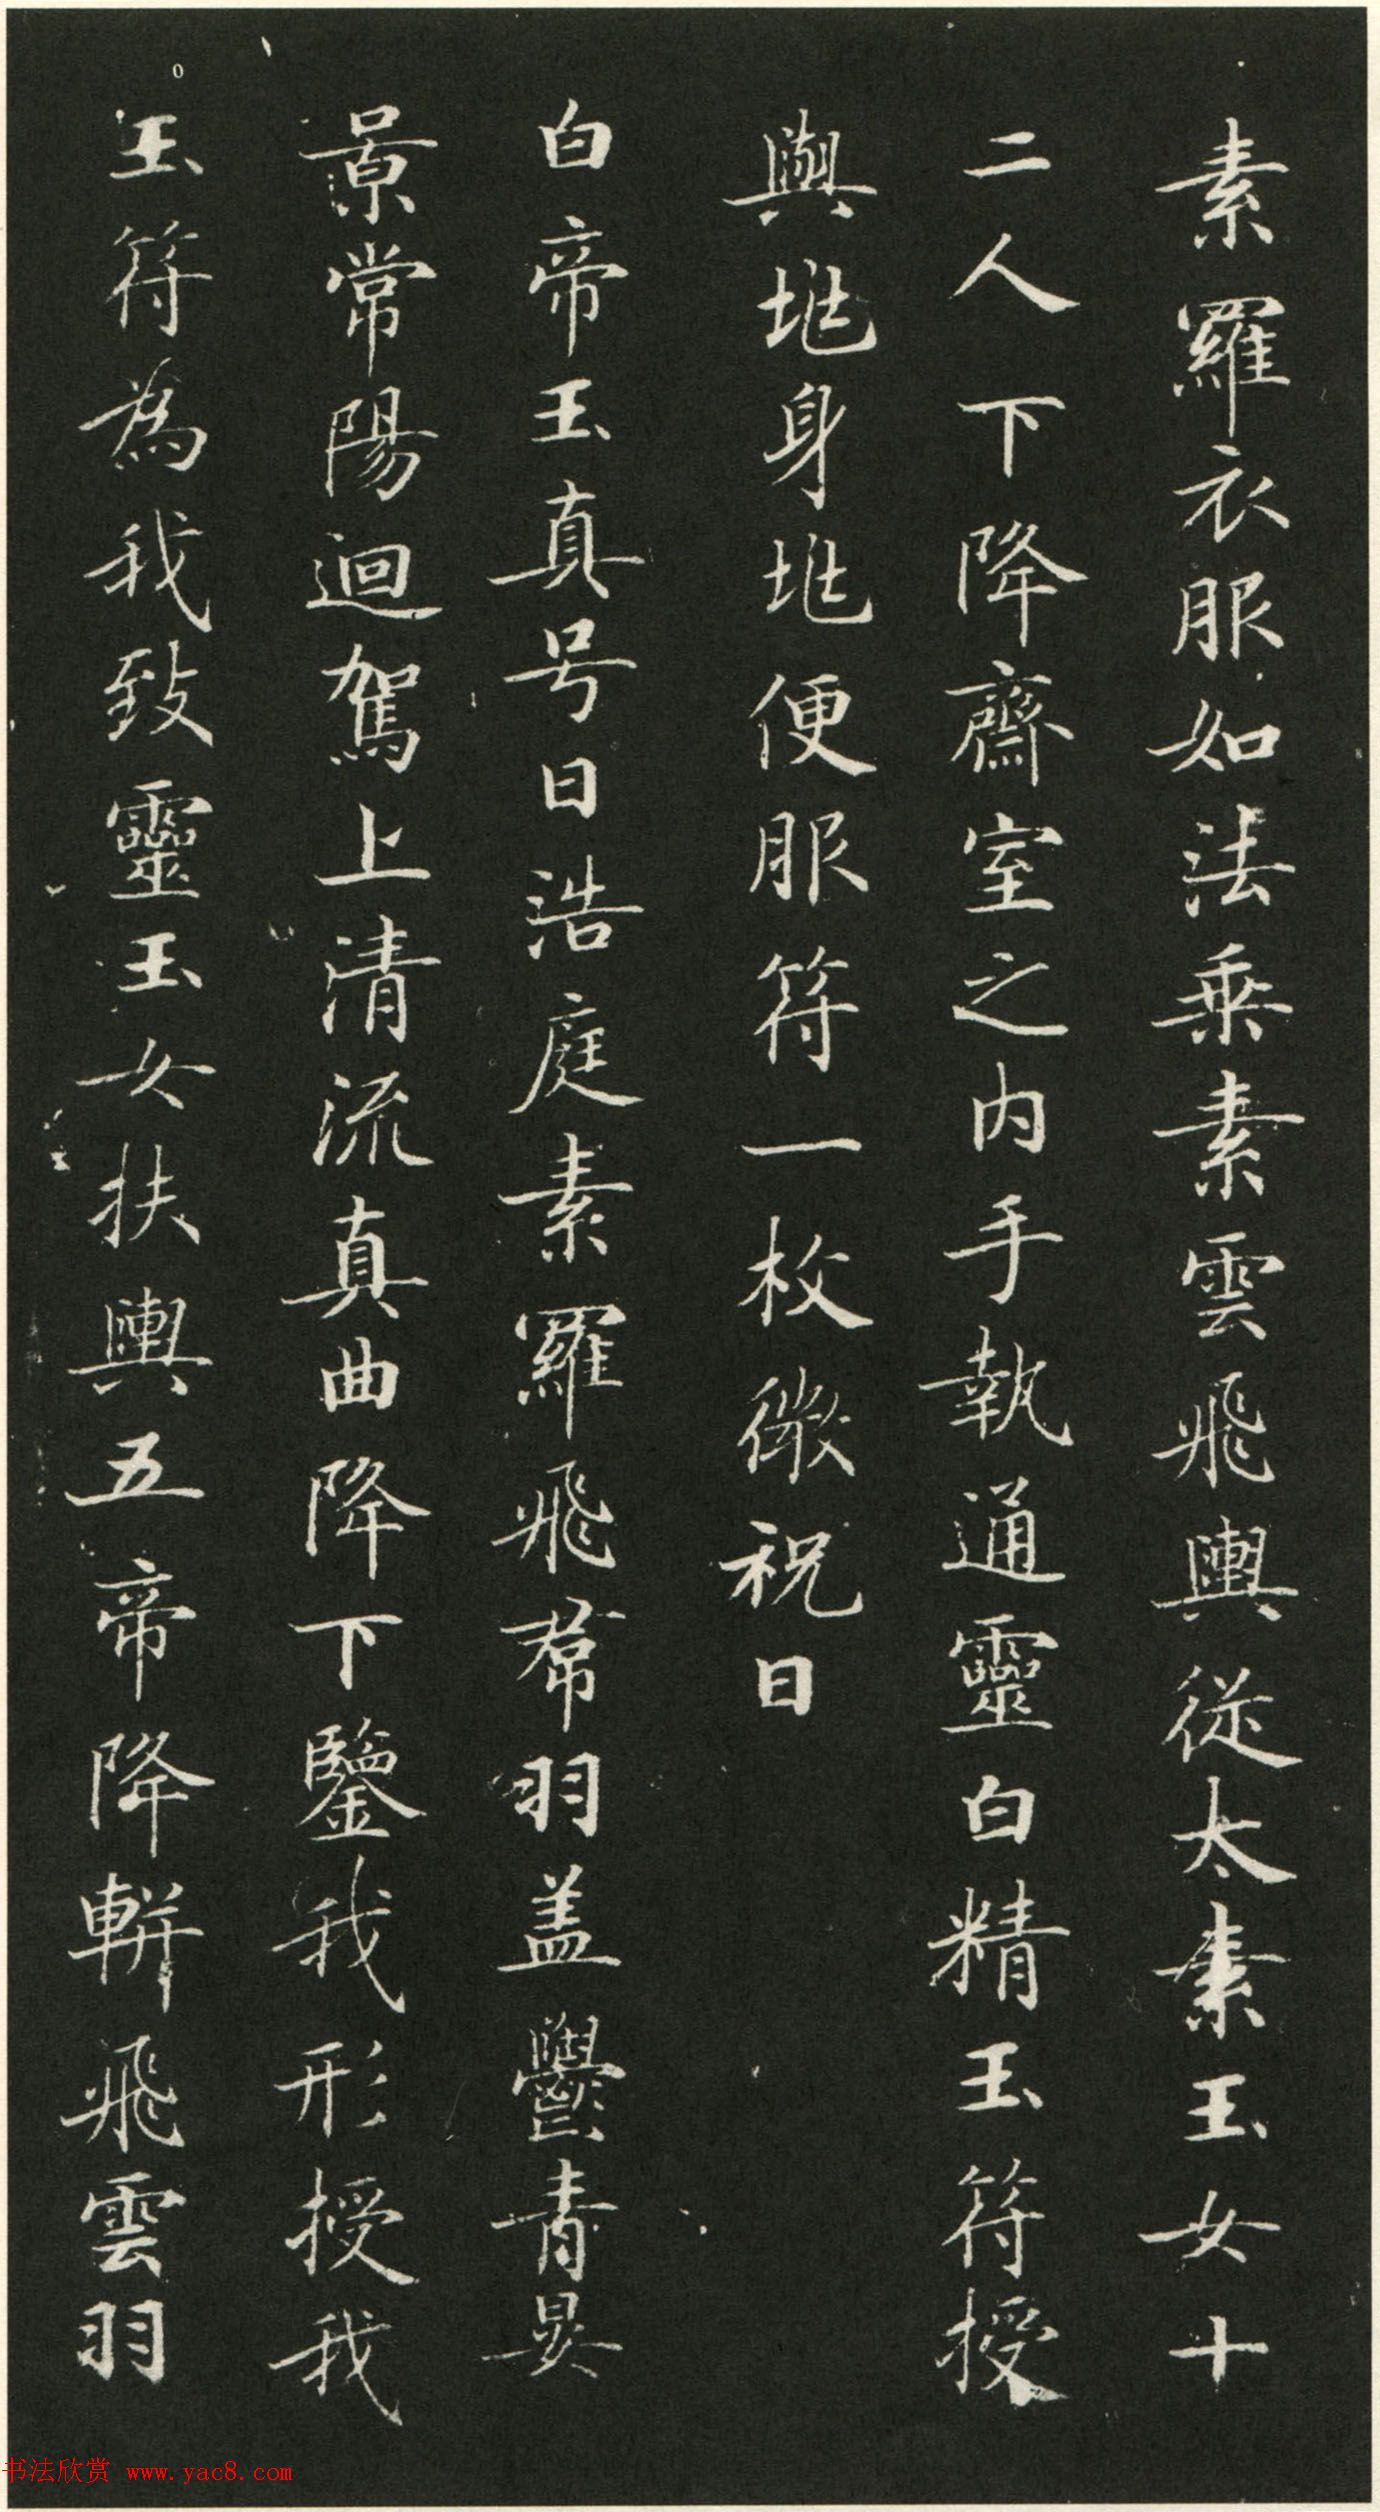 素羅衣服如法乘素雲飛輿從太素玉女十
二人下降齋室之内手執通靈白精玉符授
與地身地便服符一枚微祝曰
白帝玉真号曰浩庭素羅飛帬羽盖鬱青翼
景常陽迴駕上清流真曲降下鑒我形授我
玉符為我致靈玉女扶輿五帝降軿飛雲羽
书法欣赏 www.yac8.com